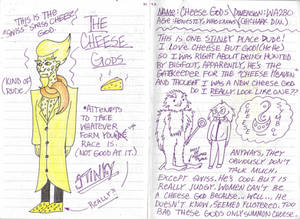 THIS IS THE
"SWISS-SWISS CHEESE"
GOD.
THE
CHEESE
GODS
KIND OF
RUDE.
• ATTEMPTS
TO TAKE
WHATEVER
FORM YOUR
RACE IS.
(NOT GOOD AT IT.)
STINKY
REALLY?!
NAME: CHEESE GODS DIMENSION: WA28O
AGE: HONESTLY, WHO KNOWS
THIS IS ONE STINKY PLACE DUDE!
I LOVE CHEESE BUT GOD (HE HE)
SO I WAS RIGHT ABOUT BEING HUNTED
BY BIGFOOT, APPARENTLY, HE'S THE
GATEKEEPER FOR THE "CHEESE HEAVEN"
AND THOUGHT I WAS A NEW CHEESE GOD
DO I REALLY LOOK LIKE ONE??
ANYWAYS, THEY
OBVIOUSLY DON'T
TALK MUCH.
EXCEPT SWISS. HE'S COOL BUT IS
REALLY JUDGY. WOMEN CAN'T BE
A CHEESE GOD BECAUSE... WELL... HE
DOESN'T KNOW. SEEMED FLUSTERED. TOO
BAD THESE GODS ONLY SUMMON CHEESE.